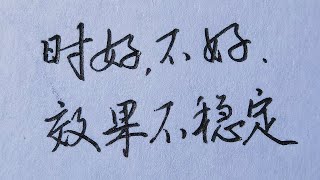 时好,不好.
效果不稳定